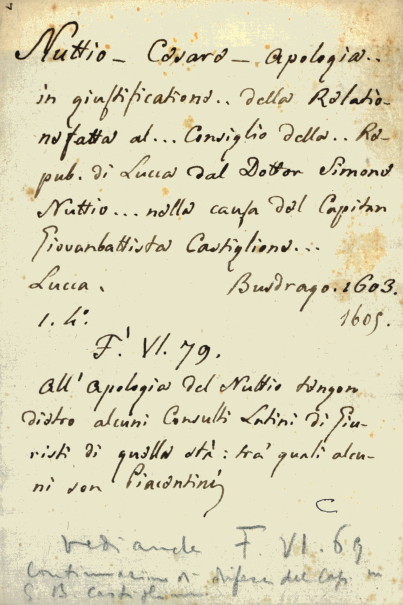 Nuttio - Cesare - Apologia..
in giustificatione.. della Relatio-
ne fatta al... Consiglio della.. Re-
pub. di Lucca dal Dottor Simone
Nuttio... nella causa del Capitan
Giovanbattista Castiglione...
Lucca. Busdrago. 1603.
1. 4º. 1605.
F. VI. 79.
All' Apologia del Nuttio tengon
dietro alcuni Consulti Latini di Giu-
risti di quella età: tra' quali alcu-
ni son Piacentini
C
vedi anche F. VI. 69
Continuazione di difese del Cap. 
G B Castiglione